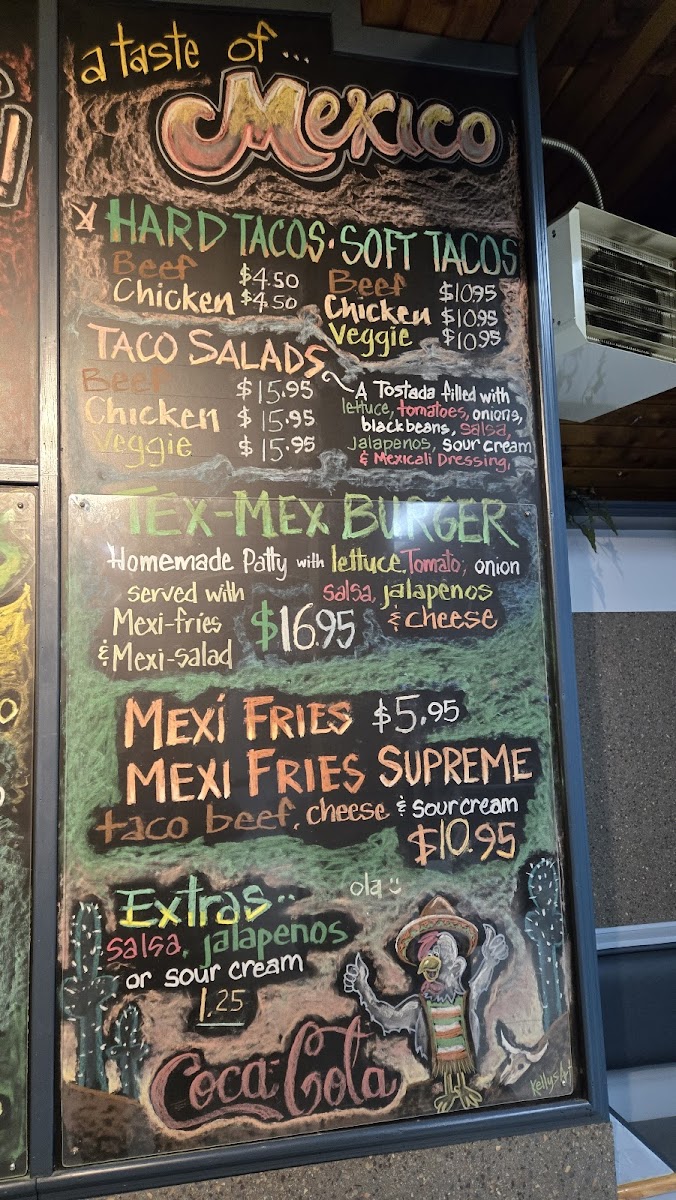 a taste of...
Mexico
HARD TACOS · SOFT TACOS
Beef $4.50
Chicken $4.50
Beef $10.95
Chicken $10.95
Veggie $10.95
TACO SALADS
Beef $15.95
Chicken $15.95
Veggie $15.95
A Tostada filled with
lettuce, tomatoes, onions,
black beans, salsa,
jalapenos, sour cream
& Mexicali Dressing.
TEX-MEX BURGER
Homemade Patty with lettuce, Tomato, onion
salsa, jalapenos
& cheese
served with
Mexi-fries
& Mexi-salad
$16.95
MEXI FRIES $5.95
MEXI FRIES SUPREME
taco beef, cheese & sour cream
$10.95
ola
Extras..
salsa, jalapenos
or sour cream
1.25
Coca-Cola